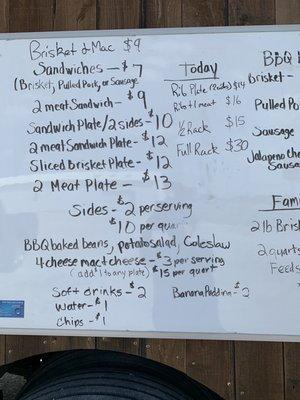 Brisket & Mac $9
Sandwiches - $7
(Brisket, Pulled Pork, or Sausage
2 meat Sandwich - $9
Sandwich Plate/2 sides - $10
2 meat Sandwich Plate - $12
Sliced Brisket Plate - $12
2 Meat Plate - $13
Sides - $2 per serving
$10 per quart
BBQ baked beans, potato salad, Coleslaw
4 cheese mac & cheese - $3 per serving
(add $1 to any plate) $15 per quart
Soft drinks - $2
Water - $1
Chips - $1
Banana Pudding - $2
Today
Rib Plate $14
Rib + 1 meat $16
1/2 Rack $15
Full Rack $30
BBQ
Brisket -
Pulled Po
Sausage
Jalapeno Chee
Sausa
Fam
2 lb Brisk
2 quarts
Feeds